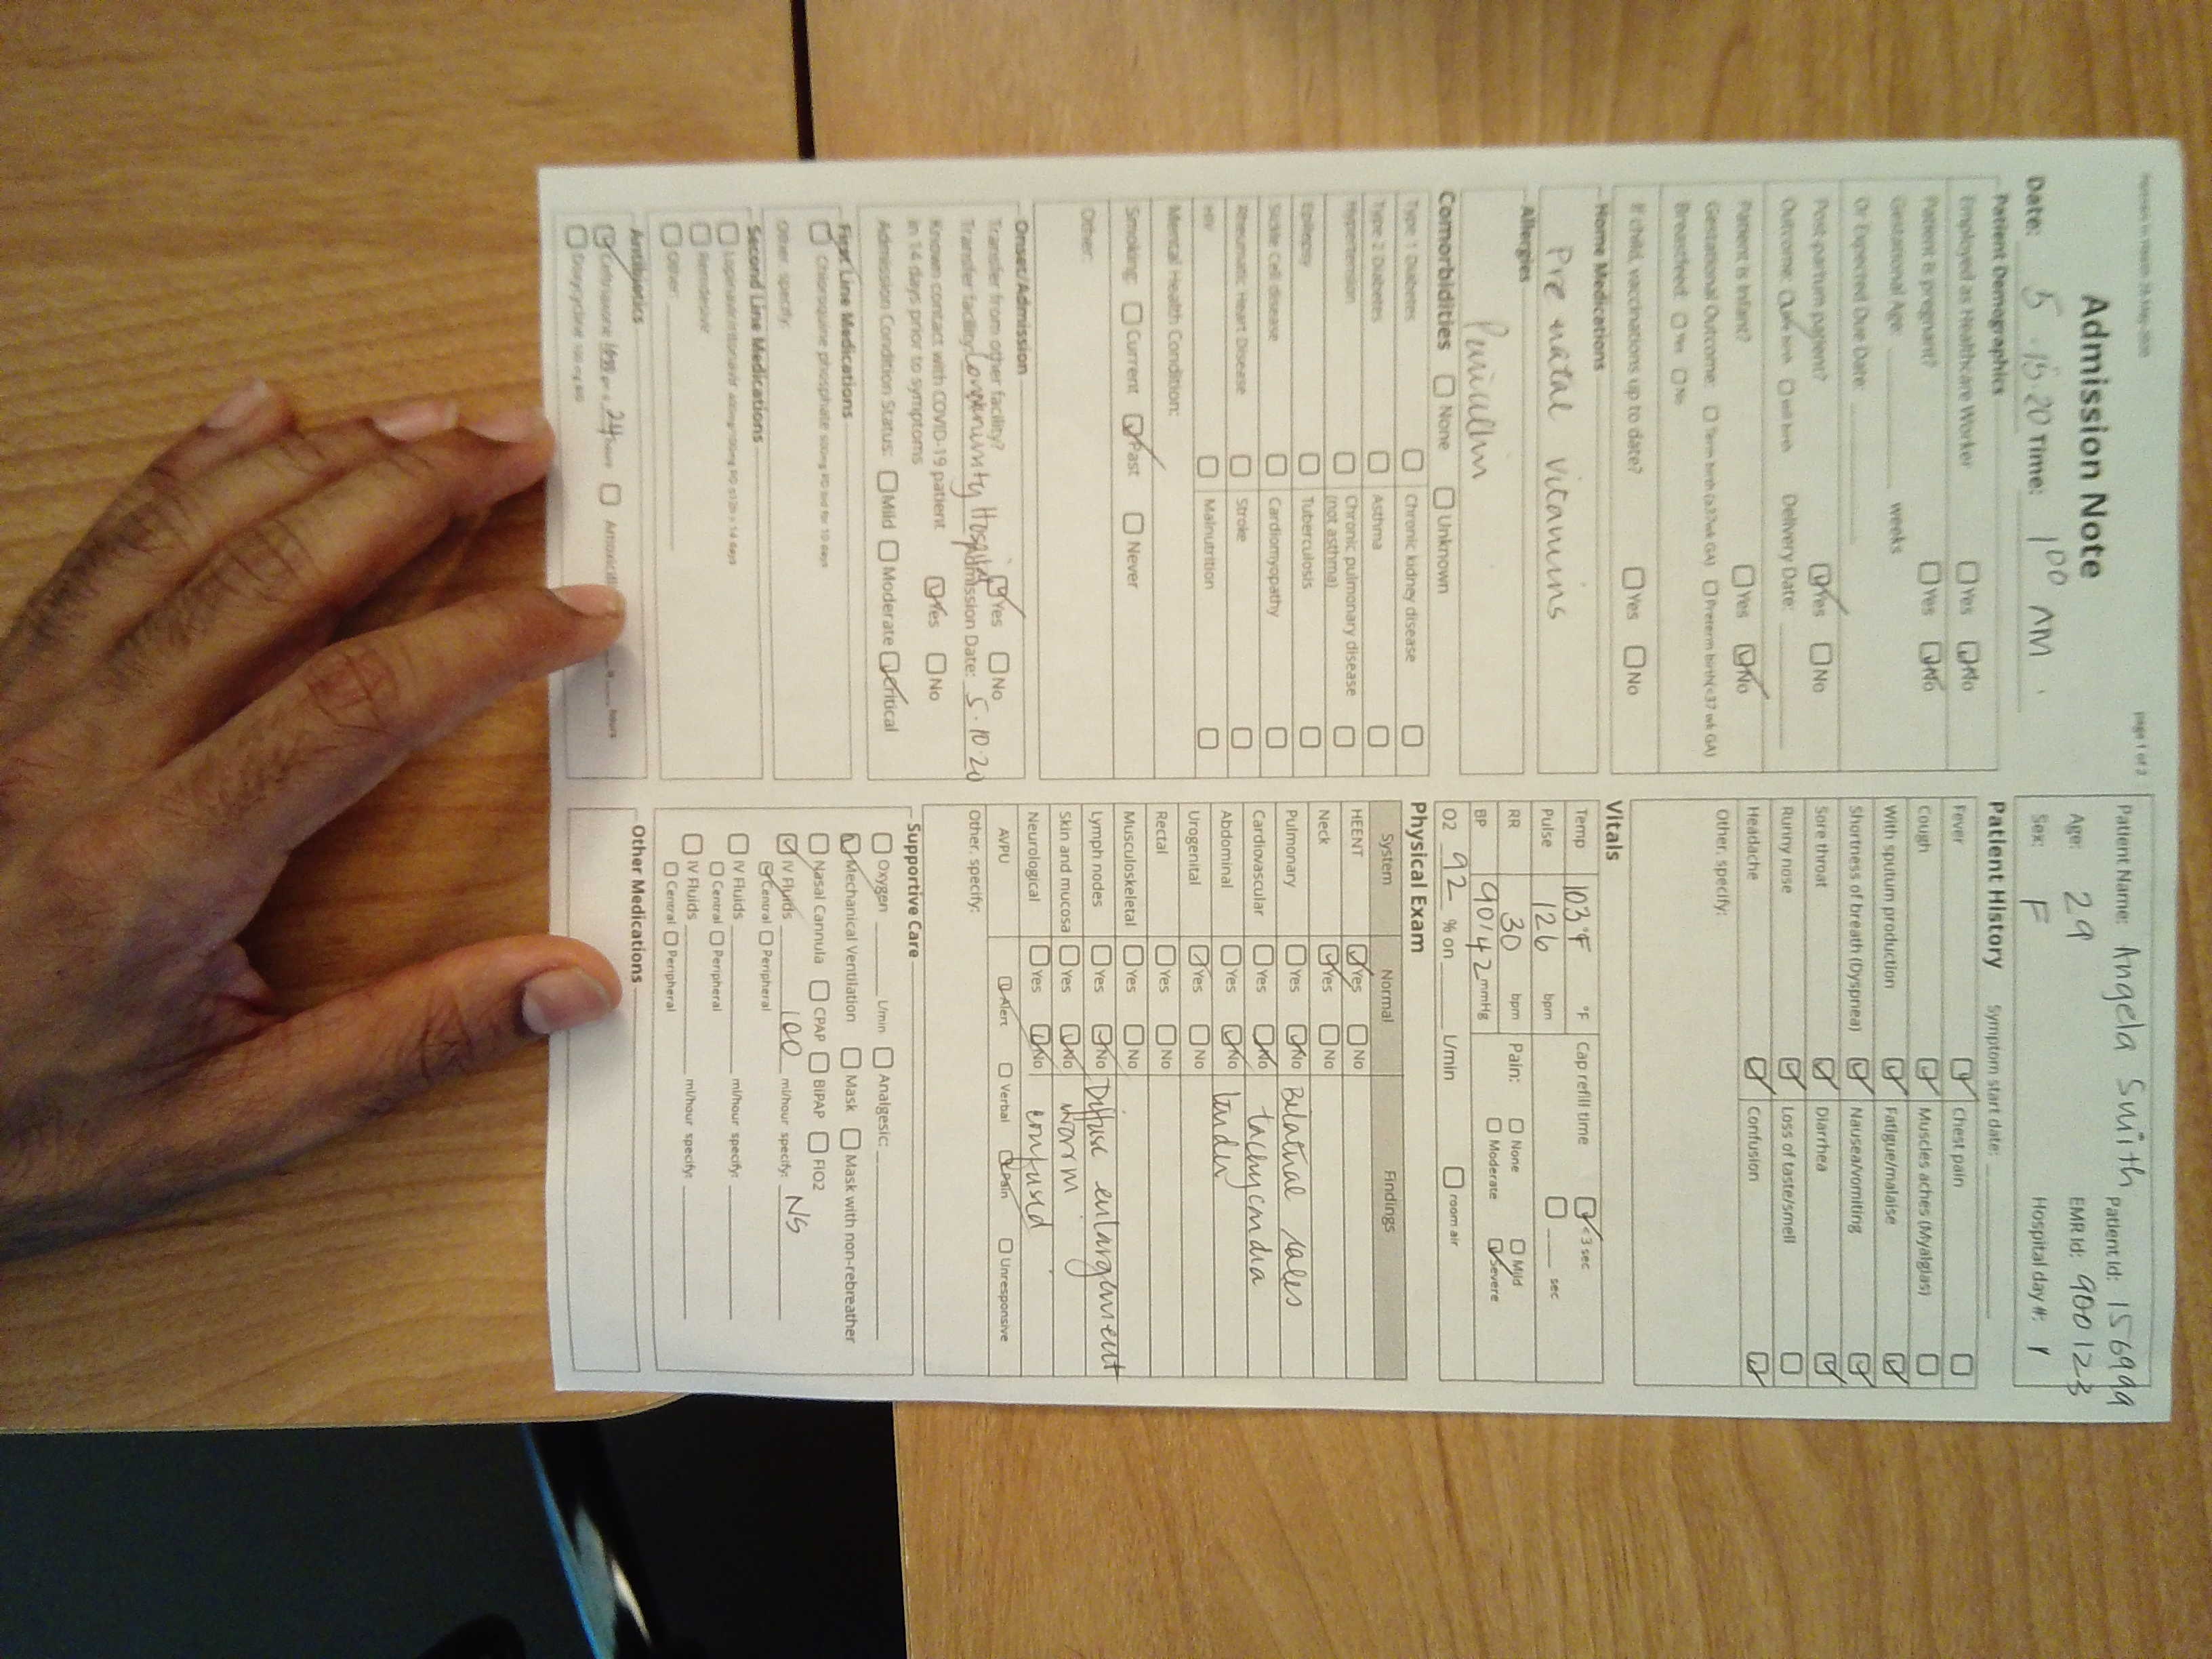 Admission Note
page 1 of 2
Date: 5 . 15 . 20 Time: 1 00 AM
Patient Name: Angela Smith Patient Id: 156999
Age: 29 EMR Id: 900123
Sex: F Hospital day #: 1
Patient Demographics
Employed as Healthcare Worker Yes No
Patient is pregnant? Yes No
Gestational Age: weeks
Or Expected Due Date:
Post-partum patient? Yes No
Outcome: Live birth Still birth Delivery Date:
Patient is infant? Yes No
Gestational Outcome: Term birth (≥37wk GA) Preterm birth(<37 wk GA)
Breastfed: Yes No
If child, vaccinations up to date? Yes No
Home Medications
Pre natal vitamins
Allergies
Penicillin
Comorbidities None Unknown
Type 1 Diabetes Chronic kidney disease
Type 2 Diabetes Asthma
Hypertension Chronic pulmonary disease
(not asthma)
Epilepsy Tuberculosis
Sickle Cell disease Cardiomyopathy
Rheumatic Heart Disease Stroke
HIV Malnutrition
Mental Health Condition:
Smoking: Current Past Never
Other:
Onset/Admission
Transfer from other facility? Yes No
Transfer facility: Community Hospital Admission Date: 5.10.20
Known contact with COVID-19 patient Yes No
in 14 days prior to symptoms
Admission Condition Status: Mild Moderate Critical
First Line Medications
Chloroquine phosphate 500mg PO bid for 10 days
Other specify:
Second Line Medications
Lopinavir/ritonavir 400mg/100mg PO q12h x 14 days
Remdesivir
Other:
Antibiotics
Ceftriaxone 24 hours
hours
Doxycycline 100 mg
Patient History Symptom start date:
Fever Chest pain
Cough Muscles aches (Myalgias)
With sputum production Fatigue/malaise
Shortness of breath (Dyspnea) Nausea/vomiting
Sore throat Diarrhea
Runny nose Loss of taste/smell
Headache Confusion
Other, specify:
Vitals
Temp 103°F °F Cap refill time <3 sec
Pulse 126 bpm sec
RR 30 bpm Pain: None Mild
BP 90/42 mmHg Moderate Severe
O2 92 % on L/min room air
Physical Exam
System Normal Findings
HEENT Yes No
Neck Yes No
Pulmonary Yes No Bilateral rales
Cardiovascular Yes No tachycardia
Abdominal Yes No tender
Urogenital Yes No
Rectal Yes No
Musculoskeletal Yes No
Lymph nodes Yes No Diffuse enlargement
Skin and mucosa Yes No warm
Neurological Yes No confused
AVPU Alert Verbal Pain Unresponsive
Other, specify:
Supportive Care
Oxygen L/min Analgesic:
Mechanical Ventilation Mask Mask with non-rebreather
Nasal Cannula CPAP BiPAP FIO2
IV Fluids 100 ml/hour specify: NS
Central Peripheral
IV Fluids ml/hour specify:
Central Peripheral
IV Fluids ml/hour specify:
Central Peripheral
Other Medications